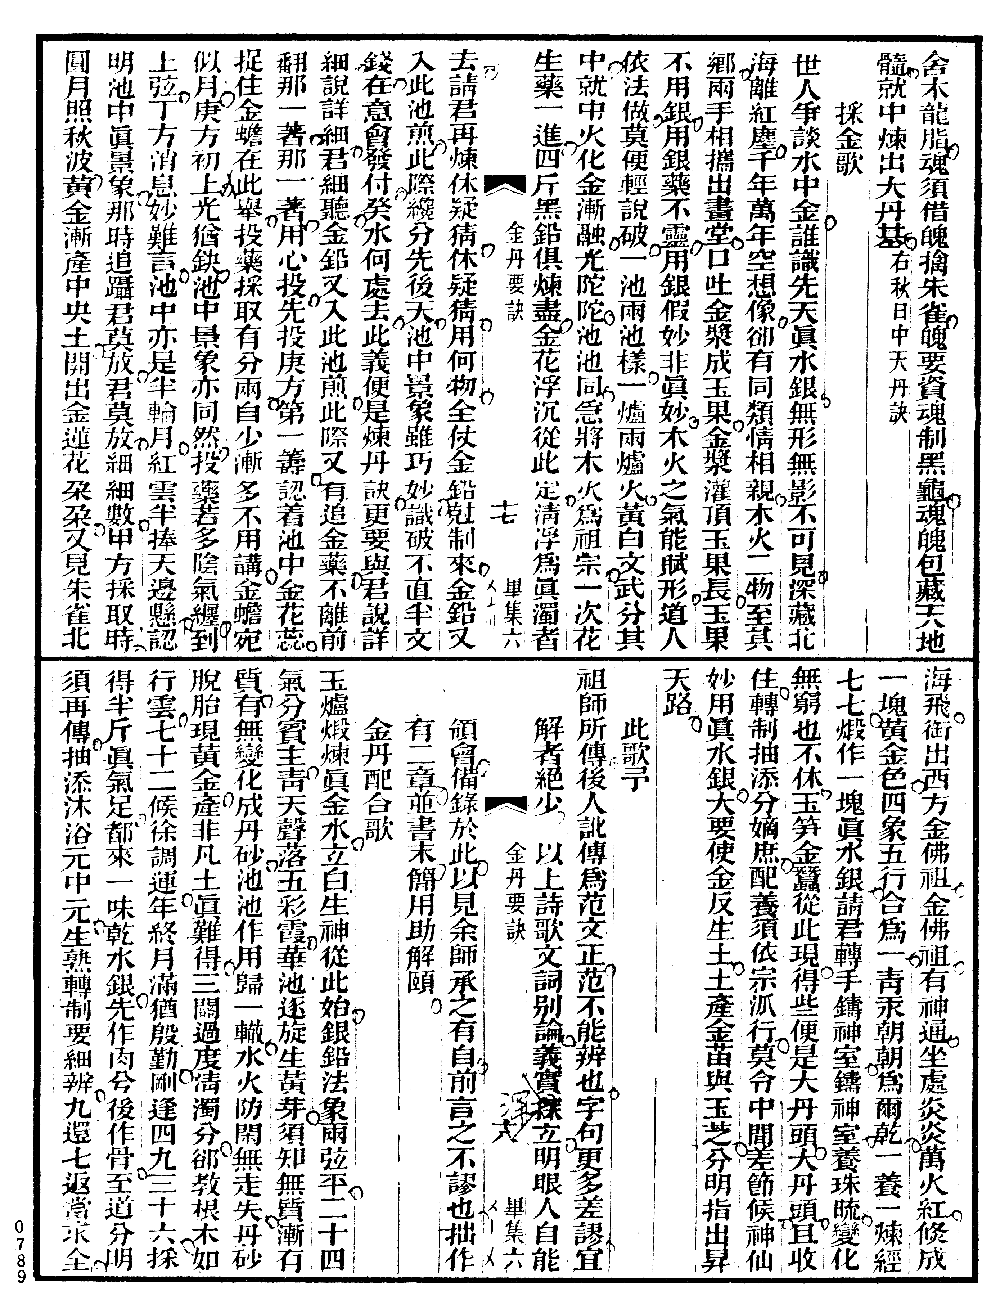 舍木龍脂魂須借魄擒朱雀魄要資魂制黑龜魂魄包藏天地
髓就中煉出大丹基右秋日中天丹訣
採金歌
世人爭談水中金誰識先天眞水銀無形無影不可見深藏北
海離紅塵千年萬年空想像卻有同類情相親木火二物至其
鄉兩手相攜出晝堂口吐金漿成玉果金漿灌頂玉果長玉果
不用銀用銀藥不靈用銀假妙非眞妙木火之氣能賦形道人
依法做莫便輕說破一池兩池樣一爐兩爐火黃白文武分其
中就中火化金漸融尤陀陀池池同急將木火爲祖宗一次花
生藥一進四斤黑鉛俱煉盡金花浮沉從此定淸浮爲眞濁者
金丹要訣 七 畢集六
去請君再煉休疑猜休疑猜用何物全仗金鉛尅制來金鉛又
入此池煎此際纔分先後天池中景象雖巧妙識破不直半文
錢在意會發付癸水何處去此義便是煉丹訣更要與君說詳
細說詳細君細聽金鉛又入此池煎此際又有追金藥不離前
翻那一著那一著用心投先投庚方第一籌認着池中金花蕊
捉住金蟾在此舉投藥採取有分兩自少漸多不用講金蟾宛
似月庚方初上光猶鈌池中景象亦同然投藥若多陰氣纏到
上弦丁方消息妙難言池中亦是半輪月紅雲半捧天邊懸認
明池中眞景象那時追躡君莫放君莫放細細數甲方採取時
圓月照秋波黃金漸產中央土開出金蓮花朶朶又見朱雀北
海飛衘出西方金佛祖金佛祖有神通坐處炎炎萬火紅修成
一塊黃金色四象五行合爲一靑汞朝朝爲爾乾一養一煉經
七七煅作一塊眞水銀請君轉手鑄神室鑄神室養珠硫變化
無窮也不休玉笋金蠶從此現得些便是大丹頭大丹頭且收
住轉制抽添分嫡庶配養須依宗派行莫令中間差節候神仙
妙用眞水銀大要使金反生土土產金苗與玉芝分明指出昇
天路
此歌予
祖師所傳後人訛傳爲范文正范不能辨也字句更多差謬宜
解者絕少 以上詩歌文詞別論義實深立明眼人自能
金丹要訣 畢集六
領會備錄於此以見余師承之有自前言之不謬也拙作
有二章並書末簡用助解頤
金丹配合歌
玉爐煅煉眞金水立白生神從此始銀鉛法象兩弦平二十四
氣分賓主靑天聲落五彩霞華池逐旋生黃芽須知無質漸有
質有無變化成丹砂池池作用歸一轍水火防閑無走失丹砂
脫胎現黃金產非凡土眞難得三關過度淸濁分卻教根木如
行雲七十二候徐調運年終月滿猶殷勤剛逢四九三十六採
得半斤眞氣足都來一味乾水銀先作肉兮後作骨至道分明
須再傳抽添沐浴元中元生熟轉制要細辨九還七返當求全
0789